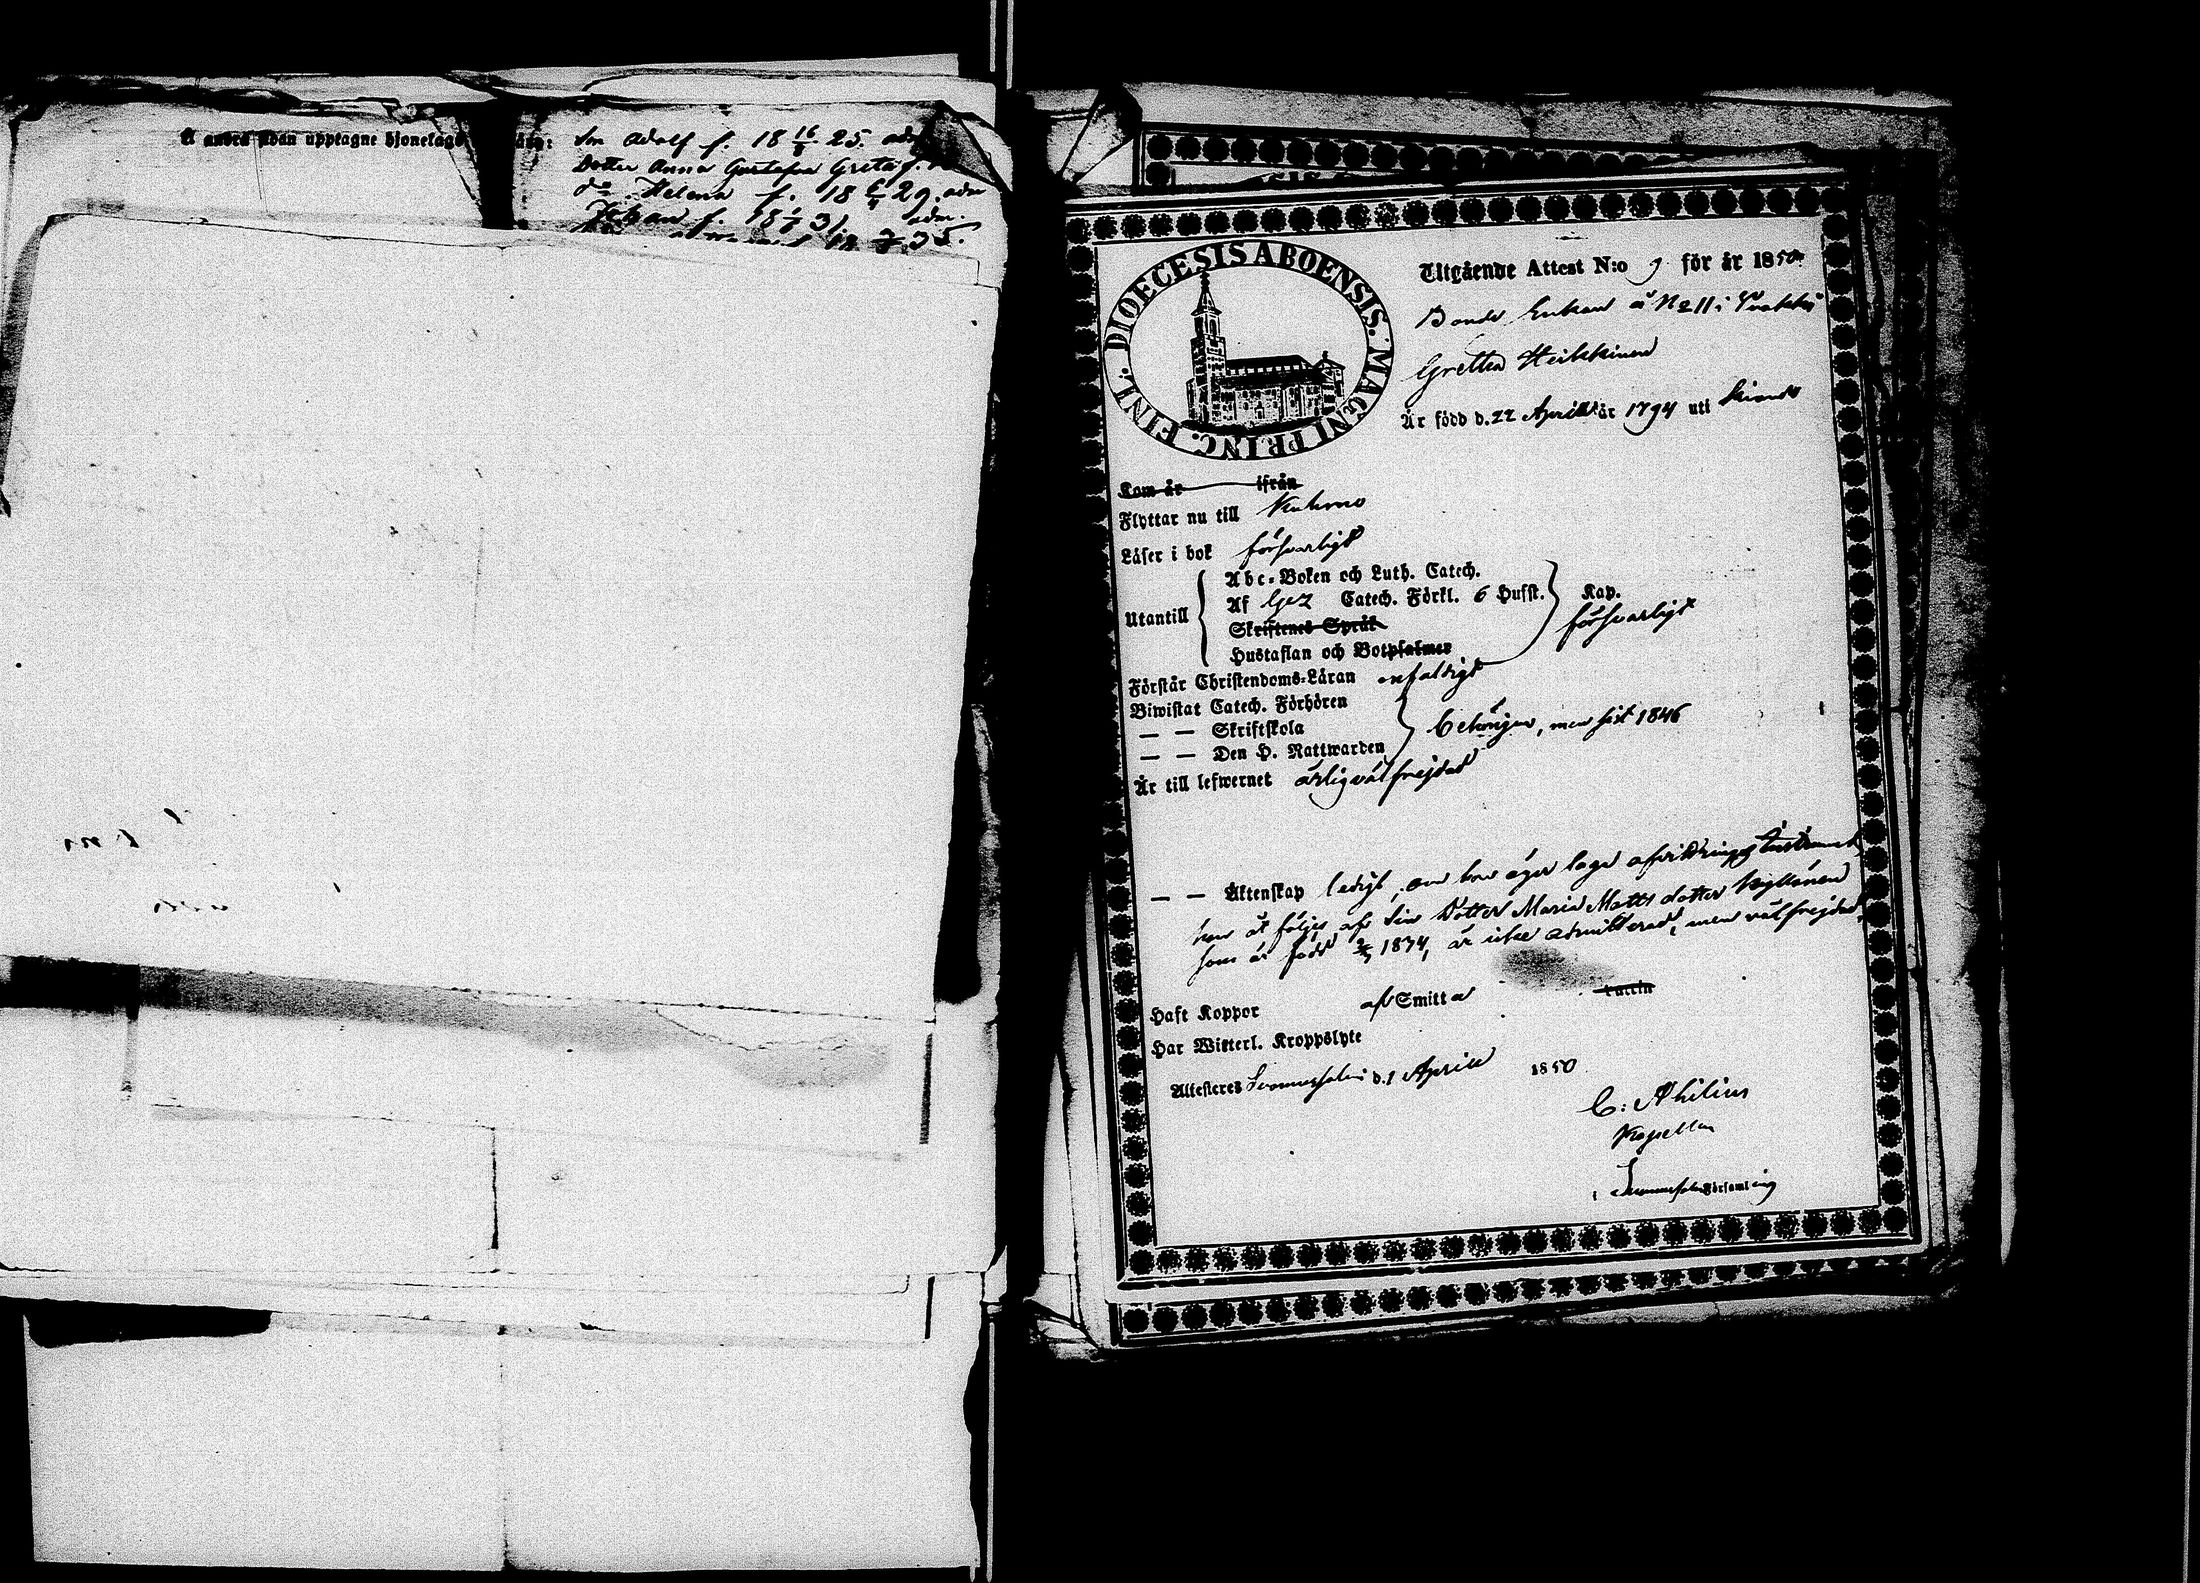 å andra sidan upptagne hjonelags
Son Adolf f. 18 16/8 25. adm
Dotter Anna Gustafva Greta f.
do Helena f. 18 6/4 29. adm
Johan f. 18 1/7 31. adm.
DIOECESIS ABOENSIS. MAGNI PRINC. FINL.
Utgående Attest N:o 9 för år 1850.
Bonde Enkan å No 11 i
Gretha Heikkinen
Är född d. 22 Aprill år 1794 uti
Kom år ifrån
Flyttar nu till Kuhmo
Läser i bok försvarligt
Utantill
Abc-Boken och Luth. Catech.
Af Catech. Förkl. 6 Hufst. Kap.
Skriftenes Språk
försvarligt
Hustaflan och Botpsalmer
Förstår Christendoms-Läran enfaldigt
Biwistat Catech. Förhören
— — Skriftskola
— — Den H. Nattwarden
behörigen, men sist 1846
Är till lefwernet ärlig välfrejdad
— — Äktenskap ledigt, om hon äger laga afvittrings
hon åtföljes af sin Dotter Maria Matts dotter Kyllönen
som är född 1834, är icke admitterad, men välfrejdad
Haft Koppor af Smitta Vaccin
Har Wisterl. Kroppslyte
Attesteres Suomussalmi d. 1 Aprill 1850
C: Ahilius
Kapellan
i Suomussalmi Församling